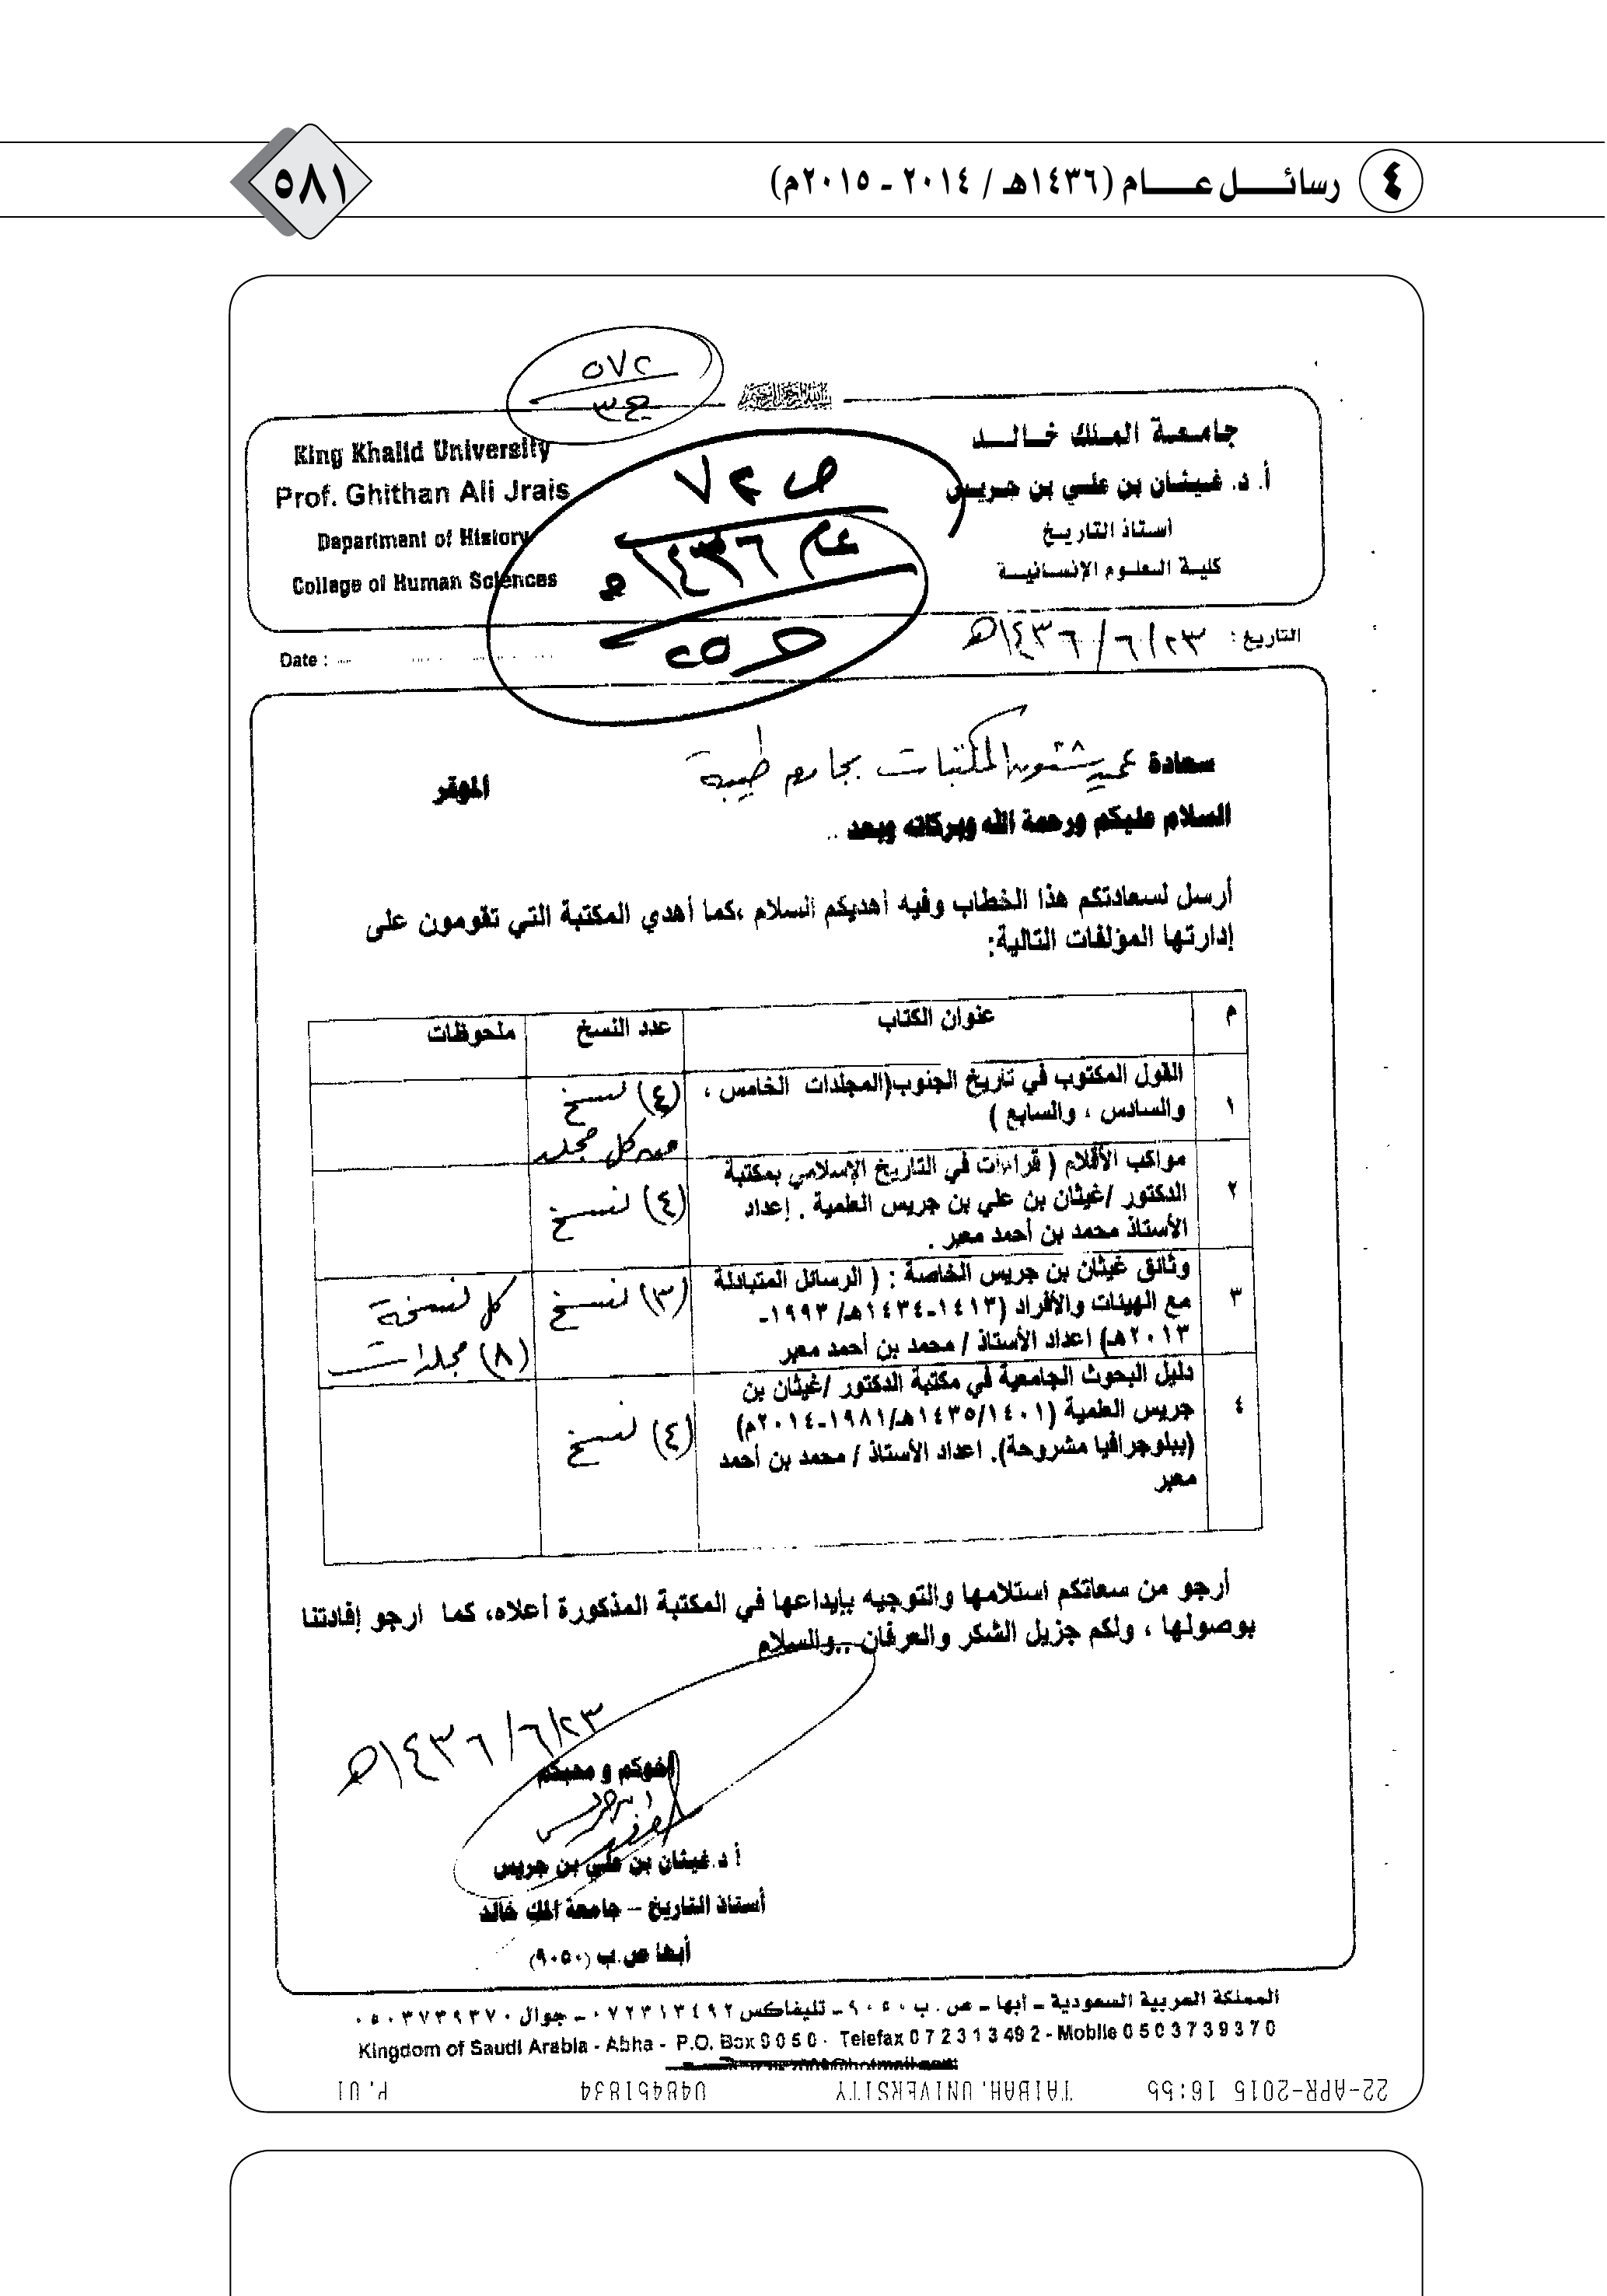 ٤ رسائـــل عـــام (١٤٣٦هـ / ٢٠١٤ ـ ٢٠١٥م)
٥٨١
٥٧٢
ج٣
بسم الله الرحمن الرحيم
جامعة الملك خالد
أ. د. غيثان بن علي بن جريس
أستاذ التاريخ
كلية العلوم الإنسانية
King Khalid University
Prof. Ghithan Ali Jrais
Department of History
College of Human Sciences
ص ٧٢
عام ١٤٣٦هـ
التاريخ : ٢٣/٦/١٤٣٦هـ
Date :
سعادة عميد شئون المكتبات بجامعة طيبة الموقر
السلام عليكم ورحمة الله وبركاته وبعد ..
أرسل لسعادتكم هذا الخطاب وفيه أهديكم السلام ،كما أهدي المكتبة التي تقومون على
إدارتها المؤلفات التالية:
م عنوان الكتاب عدد النسخ ملحوظات
١ القول المكتوب في تاريخ الجنوب(المجلدات الخامس ، والسادس ، والسابع ) (٤) نسخ من كل مجلد
٢ مواكب الأقلام ( قراءات في التاريخ الإسلامي بمكتبة الدكتور /غيثان بن علي بن جريس العلمية . إعداد الأستاذ محمد بن أحمد معبر . (٤) نسخ
٣ وثائق غيثان بن جريس الخاصة : ( الرسائل المتبادلة مع الهيئات والأفراد (١٤١٣-١٤٣٤هـ/ ١٩٩٣-٢٠١٣هـ) اعداد الأستاذ / محمد بن أحمد معبر (٣) نسخ كل نسخة (٨) مجلدات
٤ دليل البحوث الجامعية في مكتبة الدكتور /غيثان بن جريس العلمية (١٤٣٥/١٤٠١هـ/١٩٨١-٢٠١٤م) (ببلوجرافيا مشروحة). اعداد الأستاذ / محمد بن أحمد معبر (٤) نسخ
أرجو من سعاتكم استلامها والتوجيه بإيداعها في المكتبة المذكورة أعلاه، كما ارجو إفادتنا
بوصولها ، ولكم جزيل الشكر والعرفان ..والسلام
٢٣/٦/١٤٣٦هـ
أخوكم و محبكم
أ د.غيثان بن علي بن جريس
أستاذ التاريخ – جامعة الملك خالد
أبها ص.ب (٩٠٥٠)
المملكة العربية السعودية ـ أبها ـ ص . ب ٩٠٥٠ ـ تليفاكس ٠٧٢٣١٣٤٩٢ ـ جوال ٠٥٠٣٧٣٩٣٧٠
Kingdom of Saudi Arabia - Abha - P.O. Box 9050 - Telefax 072313492 - Mobile 0503739370
22-APR-2015 16:55 TAIBAH.UNIVERSITY 048461834 P.01